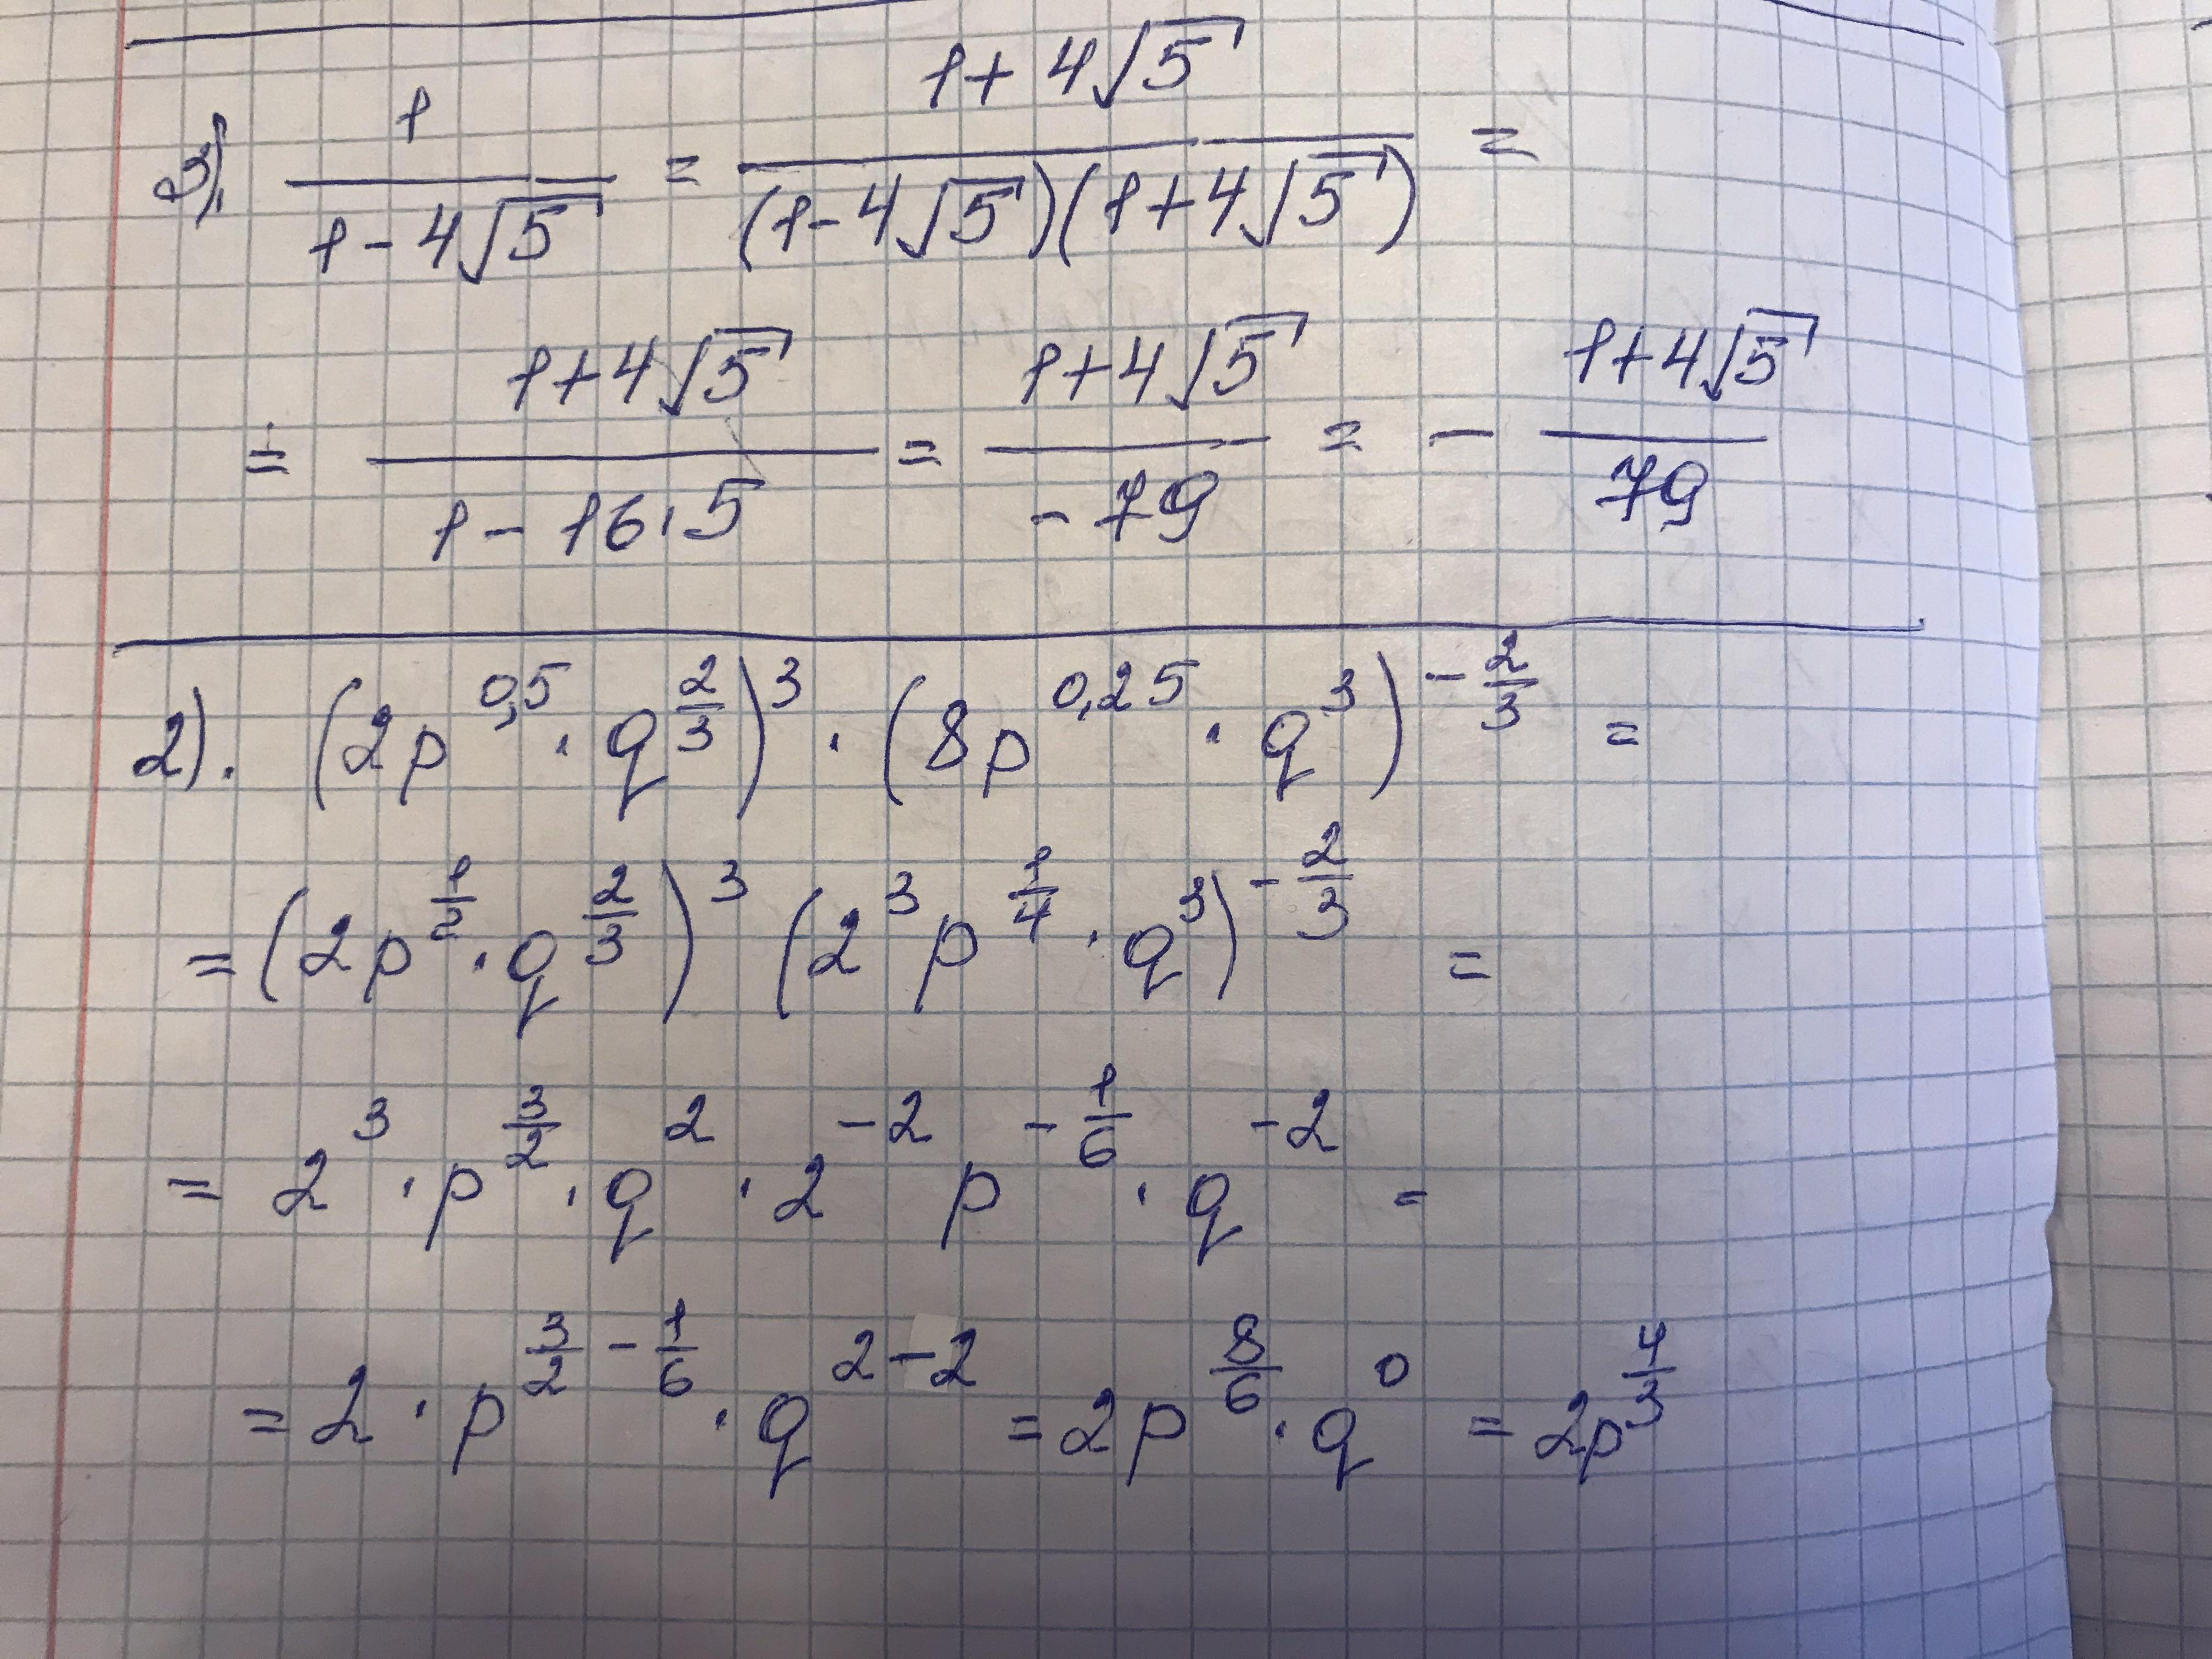 3). 1/(1-4√5) = (1+4√5)/((1-4√5)(1+4√5)) =
= (1+4√5)/(1-16·5) = (1+4√5)/(-79) = - (1+4√5)/79
2). (2p^0,5 · q^(2/3))^3 · (8p^0,25 · q^3)^(-2/3) =
= (2p^(1/2) · q^(2/3))^3 (2^3 p^(1/4) · q^3)^(-2/3) =
= 2^3 · p^(3/2) · q^2 · 2^(-2) p^(-1/6) · q^(-2) =
= 2 · p^(3/2 - 1/6) · q^(2-2) = 2p^(8/6) · q^0 = 2p^(4/3)